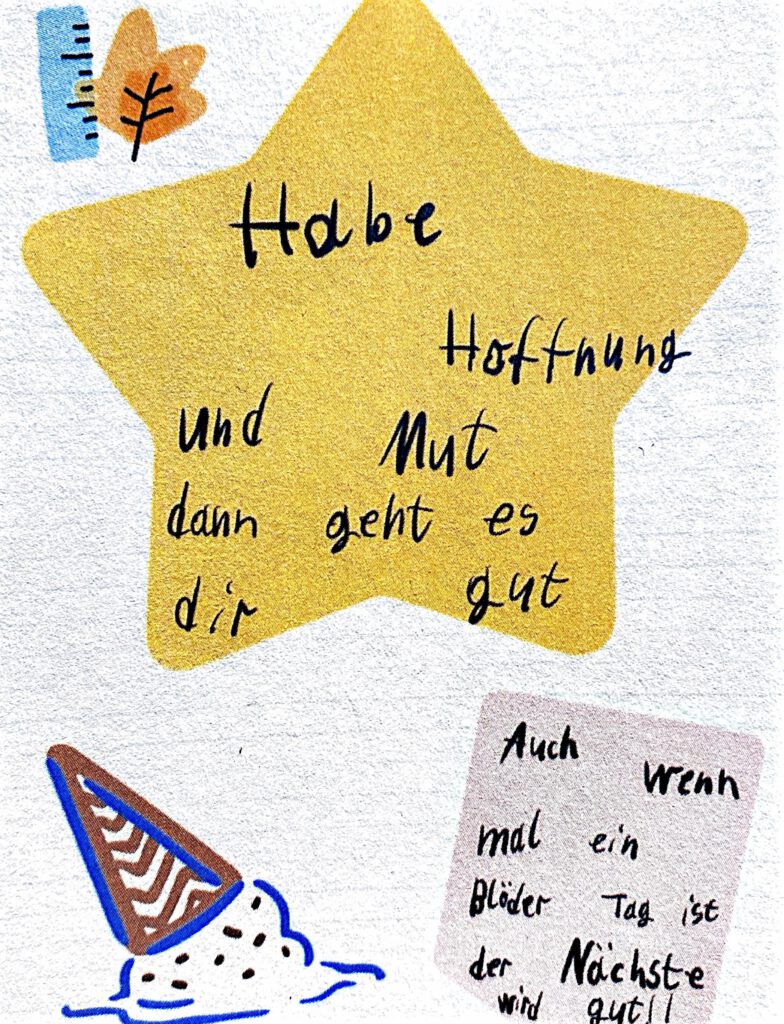 Habe
Hoffnung
und Mut
dann geht es
dir gut
Auch wenn
mal ein
Blöder Tag ist
der Nächste
wird gut!!